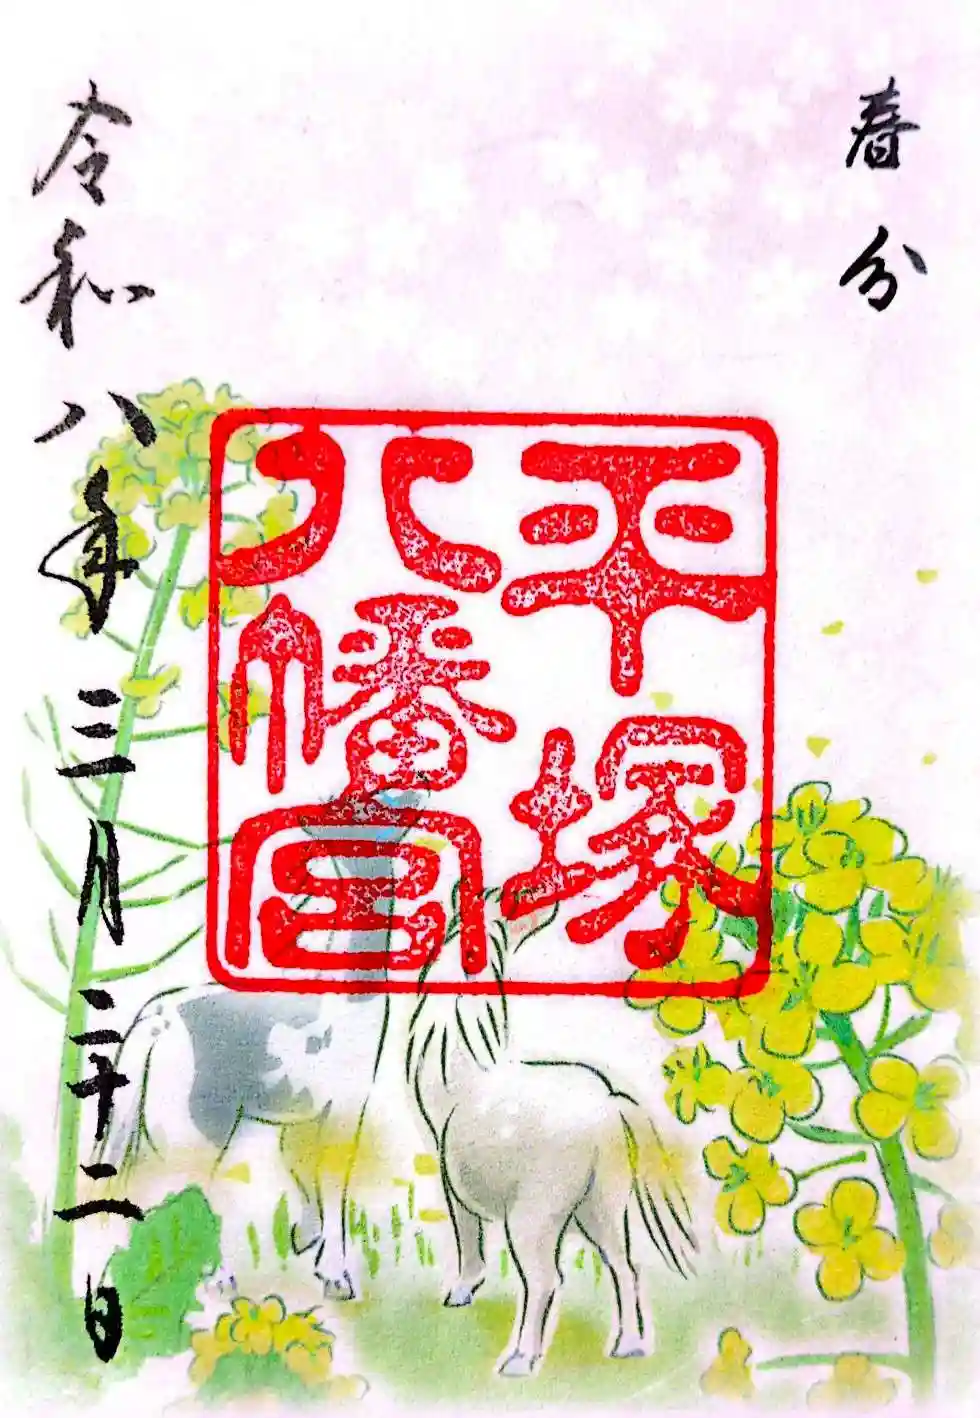 春分
平塚
八幡宮
令和八年三月二十二日